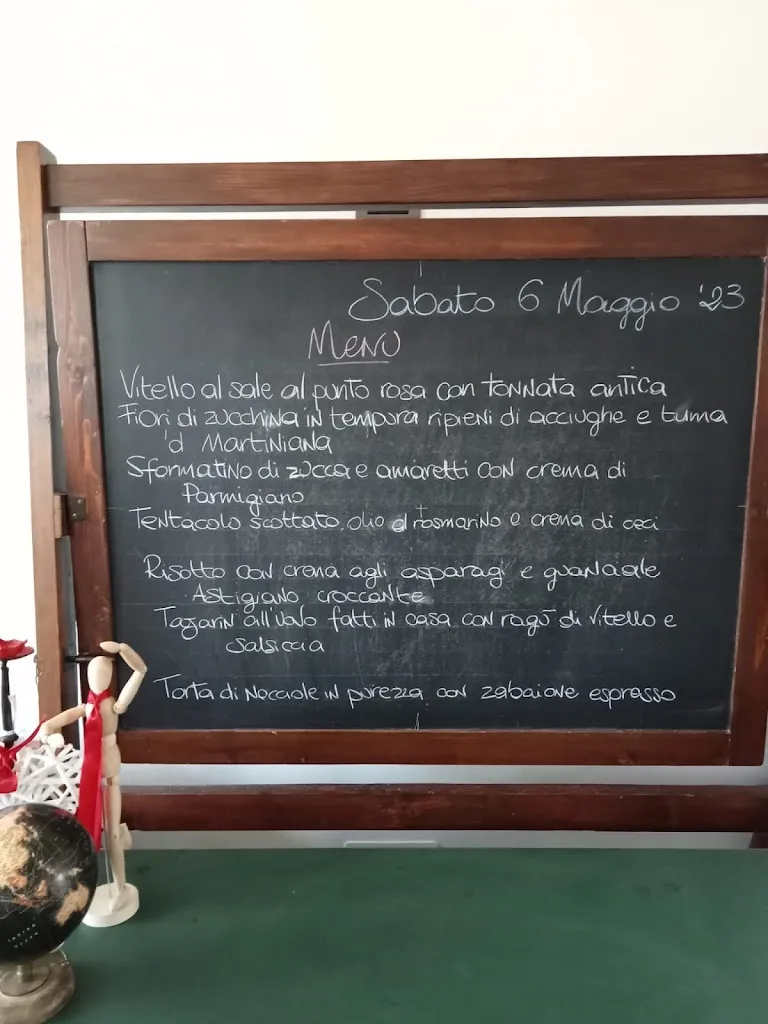 Sabato 6 Maggio '23
Menù
Vitello al sale al punto rosa con tonnata antica
Fiori di zucchina in tempura ripieni di acciughe e tuma
'd Martiniana
Sformatino di zucca e amaretti con crema di
Parmigiano
Tentacolo scottato, olio al rosmarino e crema di ceci
Risotto con crema agli asparagi e guanciale
Astigiano croccante
Tagarin all'uovo fatti in casa con ragù di vitello e
salsiccia
Torta di Nocciole in purezza con zabaione espresso